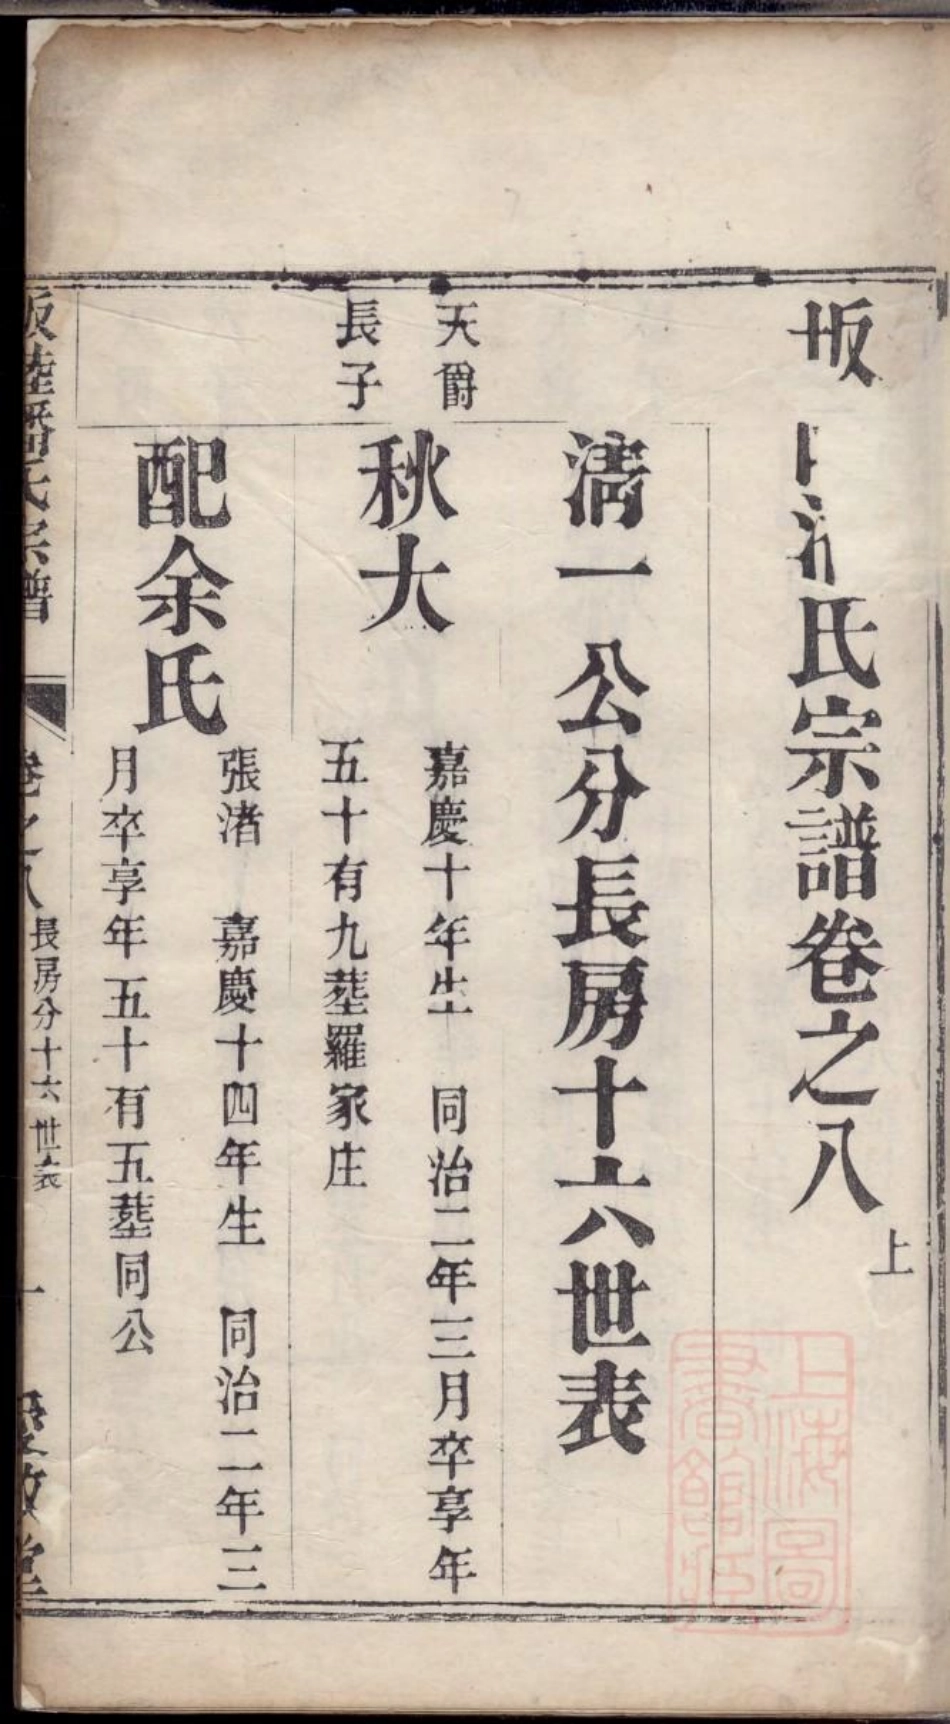 氏宗譜卷之八 上
淸一公分長房十六世表
天爵
長子
秋大
嘉慶十年生 同治二年三月卒享年
五十有九塟羅家庄
配余氏
張渚 嘉慶十四年生 同治二年三
月卒享年五十有五塟同公
潘氏宗譜
卷之八
長房分十六世表
一
上海圖
書館藏